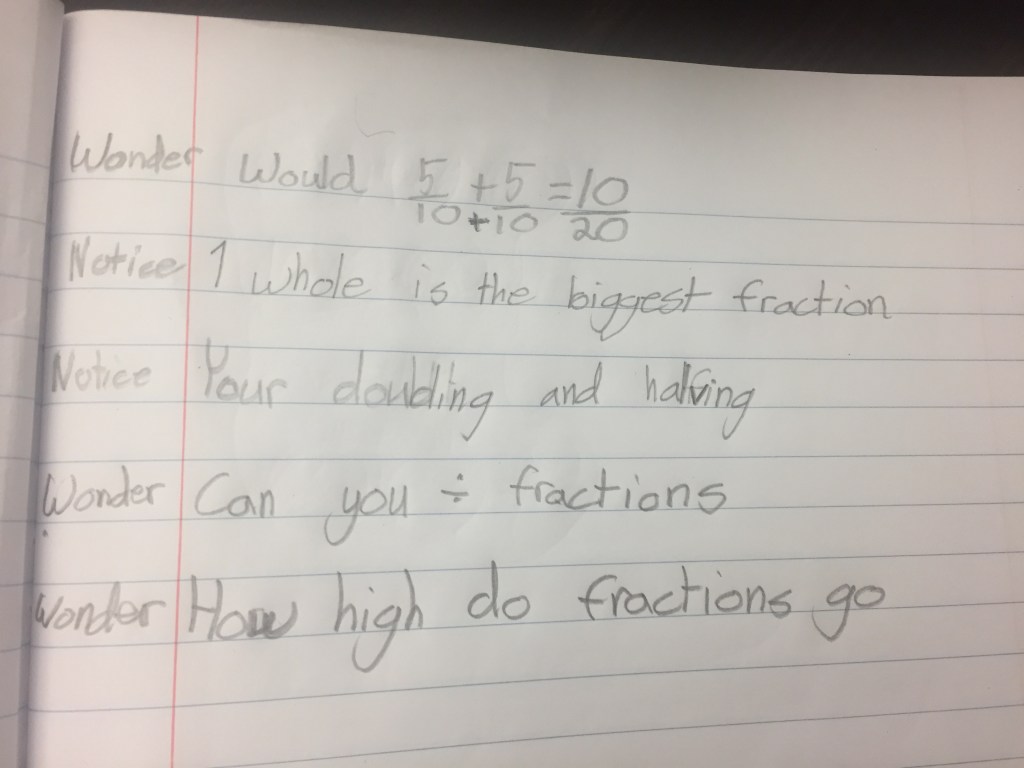 Wonder Would 5/10 + 5/10 = 10/20
Notice 1 whole is the biggest fraction
Notice Your doulding and halfing
Wonder Can you ÷ fractions
Wonder How high do fractions go